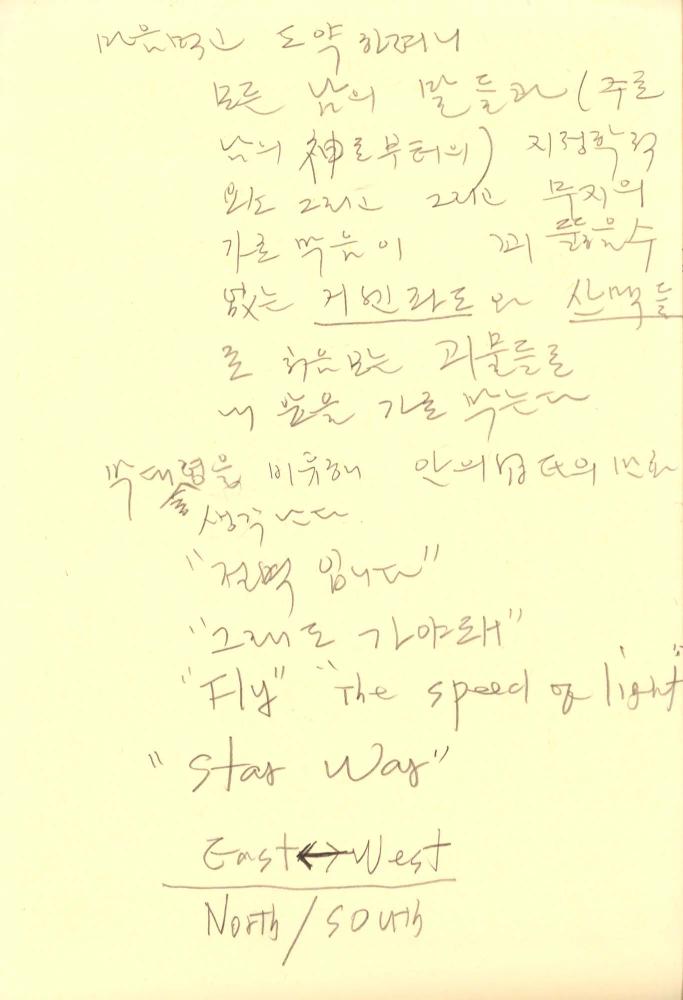 마음먹고 도약하려니
모든 남의 말들과 (주로
남의 神로부터의) 지정학적
외도 그리고 그리고 무지의
가로막음이 꿰뚫을수
없는 거빈라도와 산맥들
로 처음보는 괴물들로
내 눈을 가로 막는다
막대령을 비유해 안의
생각난다
"절벽 입니다"
"그래도 가야돼"
"Fly" "The speed of light"
"Star War"
East↔West
North/South